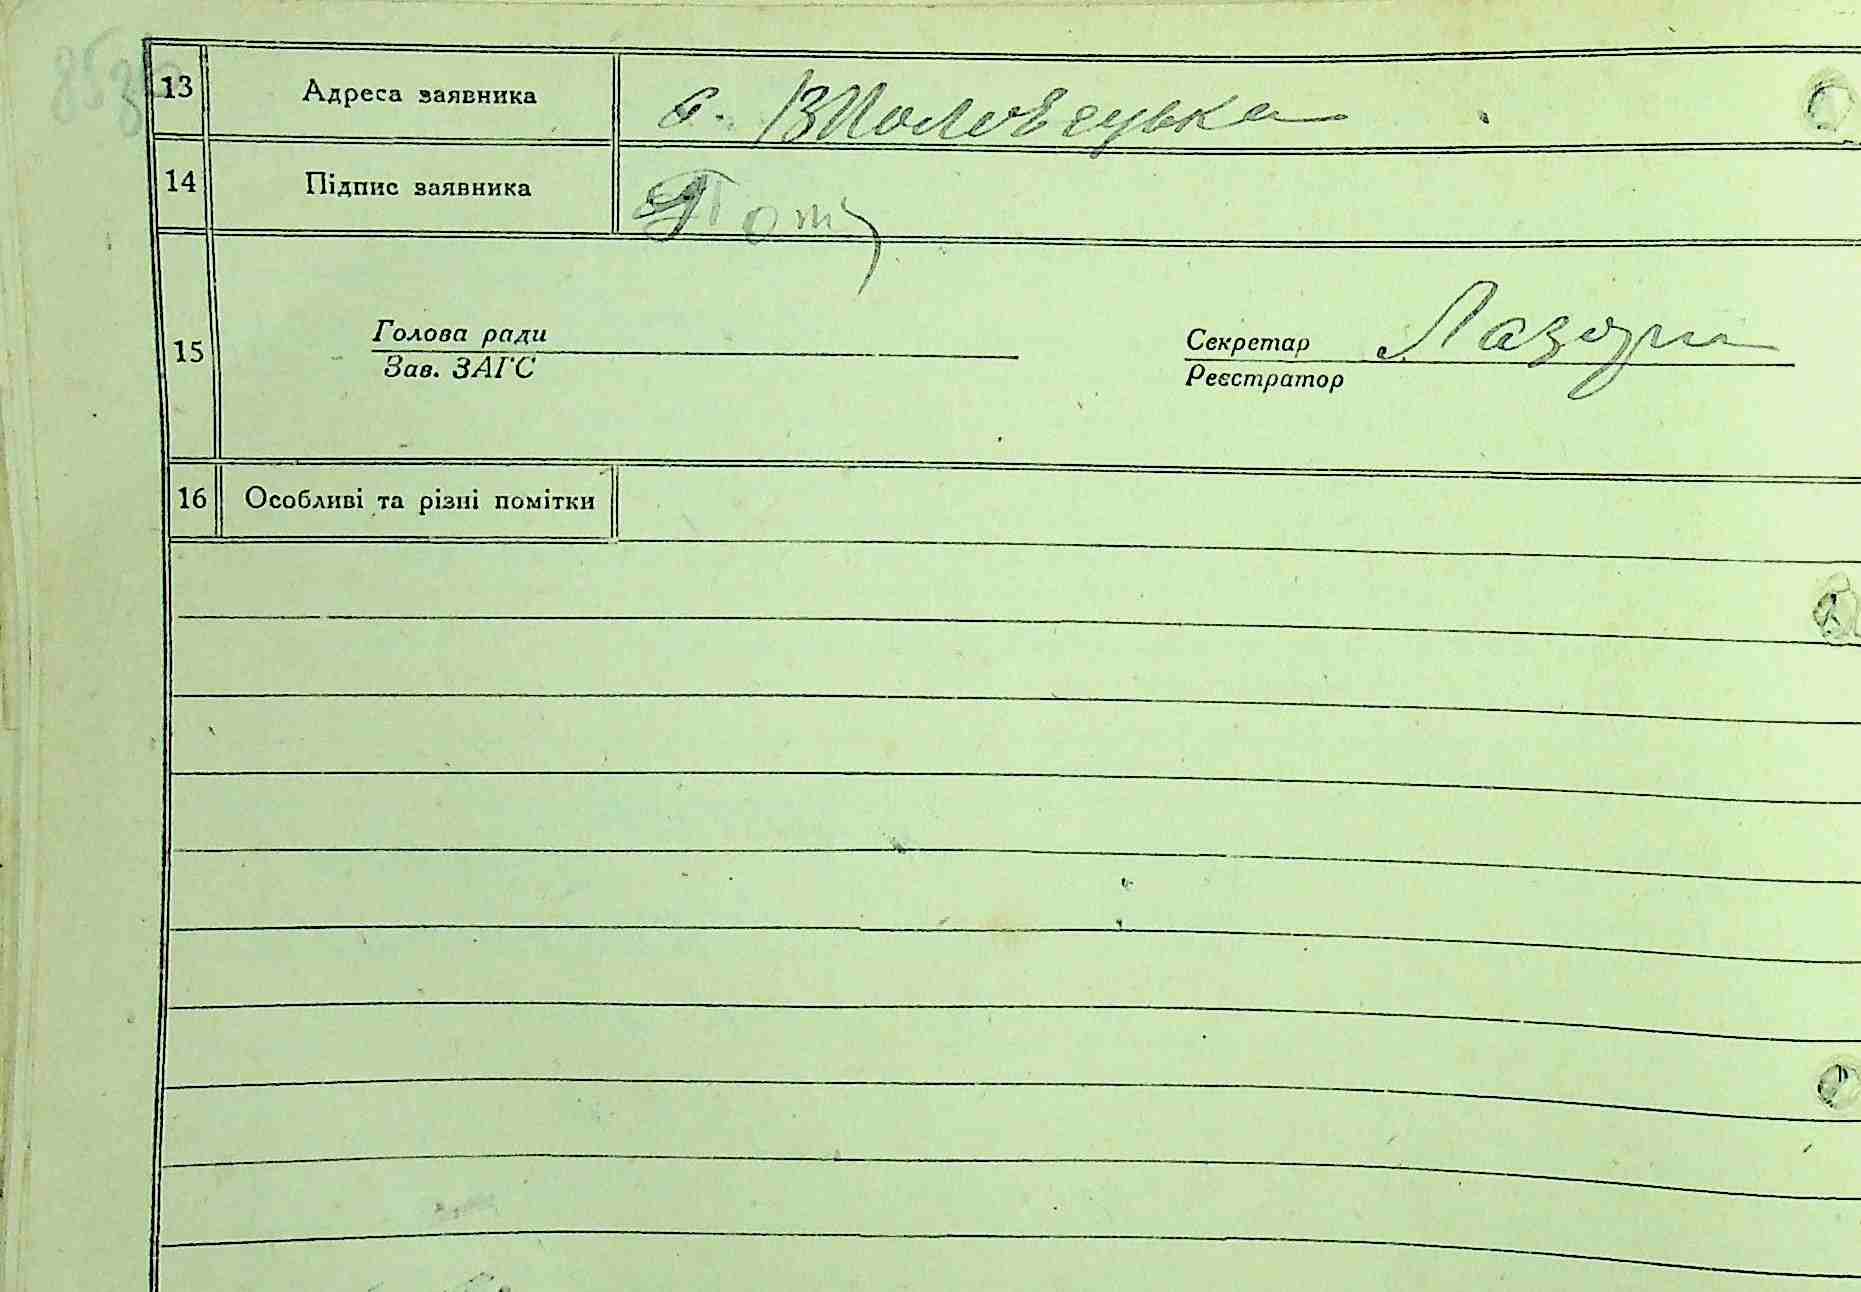 13 Адреса заявника с. В Половецьке
14 Підпис заявника
15 Голова ради Секретар
Зав. ЗАГС Реєстратор
16 Особливі та різні помітки